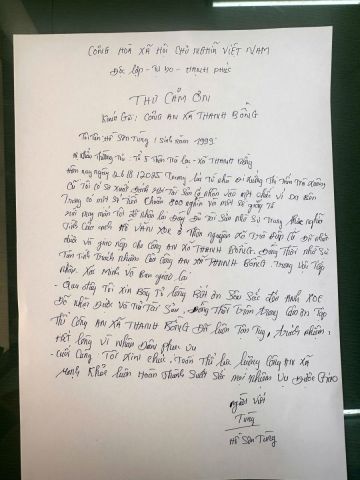 CỘNG HOÀ XÃ HỘI CHỦ NGHĨA VIỆT NAM
Độc lập - Tự do - HẠNH PHÚC
THƯ CẢM ƠN
Kính Gửi: CÔNG AN XÃ THANH BỒNG
Tôi tên Hồ Sơn Tùng sinh năm 1999
Khẩu Thường Trú: Tổ 5 Thôn Trà Lạc - Xã Thanh Bồng
Hôm nay ngày 18/12/025 Trong lúc từ chợ đi xuống Thị Trấn Trà Xuân
Cũ Tôi có Sơ xuất đánh rơi Tài Sản cá nhân vào một chiếc ví Da Bên
Trong có một số Tiền 900 nghìn và một số giấy tờ
may mắn Tôi đã nhận lại Đầy Đủ Tài Sản Nhờ Sự Trung thực
của anh HỒ VĂN XOE ở Thôn Nguyên xã Trà Đốc Cũ Đã nhặt
được và giao nộp cho Công AN XÃ THANH BỒNG. Đồng Thời nhờ Sự
Tận Tình Trách Nhiệm của Công AN XÃ THANH BỒNG Trong việc Tiếp
nhận. Xác Minh và Bàn giao lại
- Qua đây Tôi xin Bày Tỏ lòng Biết ơn Sâu Sắc đến Anh XOE
Đã nhặt Được và Trả Tài Sản, Đồng Thời Trân trọng Cảm ơn Tập
Thể Công AN XÃ THANH BỒNG Đã luôn Tận Tụy, trách nhiệm,
Hết lòng vì Nhân Dân phục vụ
- Cuối Cùng Tôi Xin chúc Toàn Thể lực lượng Công AN XÃ
Mạnh Khỏe luôn Hoàn Thành Xuất Sắc mọi nhiệm Vụ Được Giao
Người viết
Tùng
Hồ Sơn Tùng